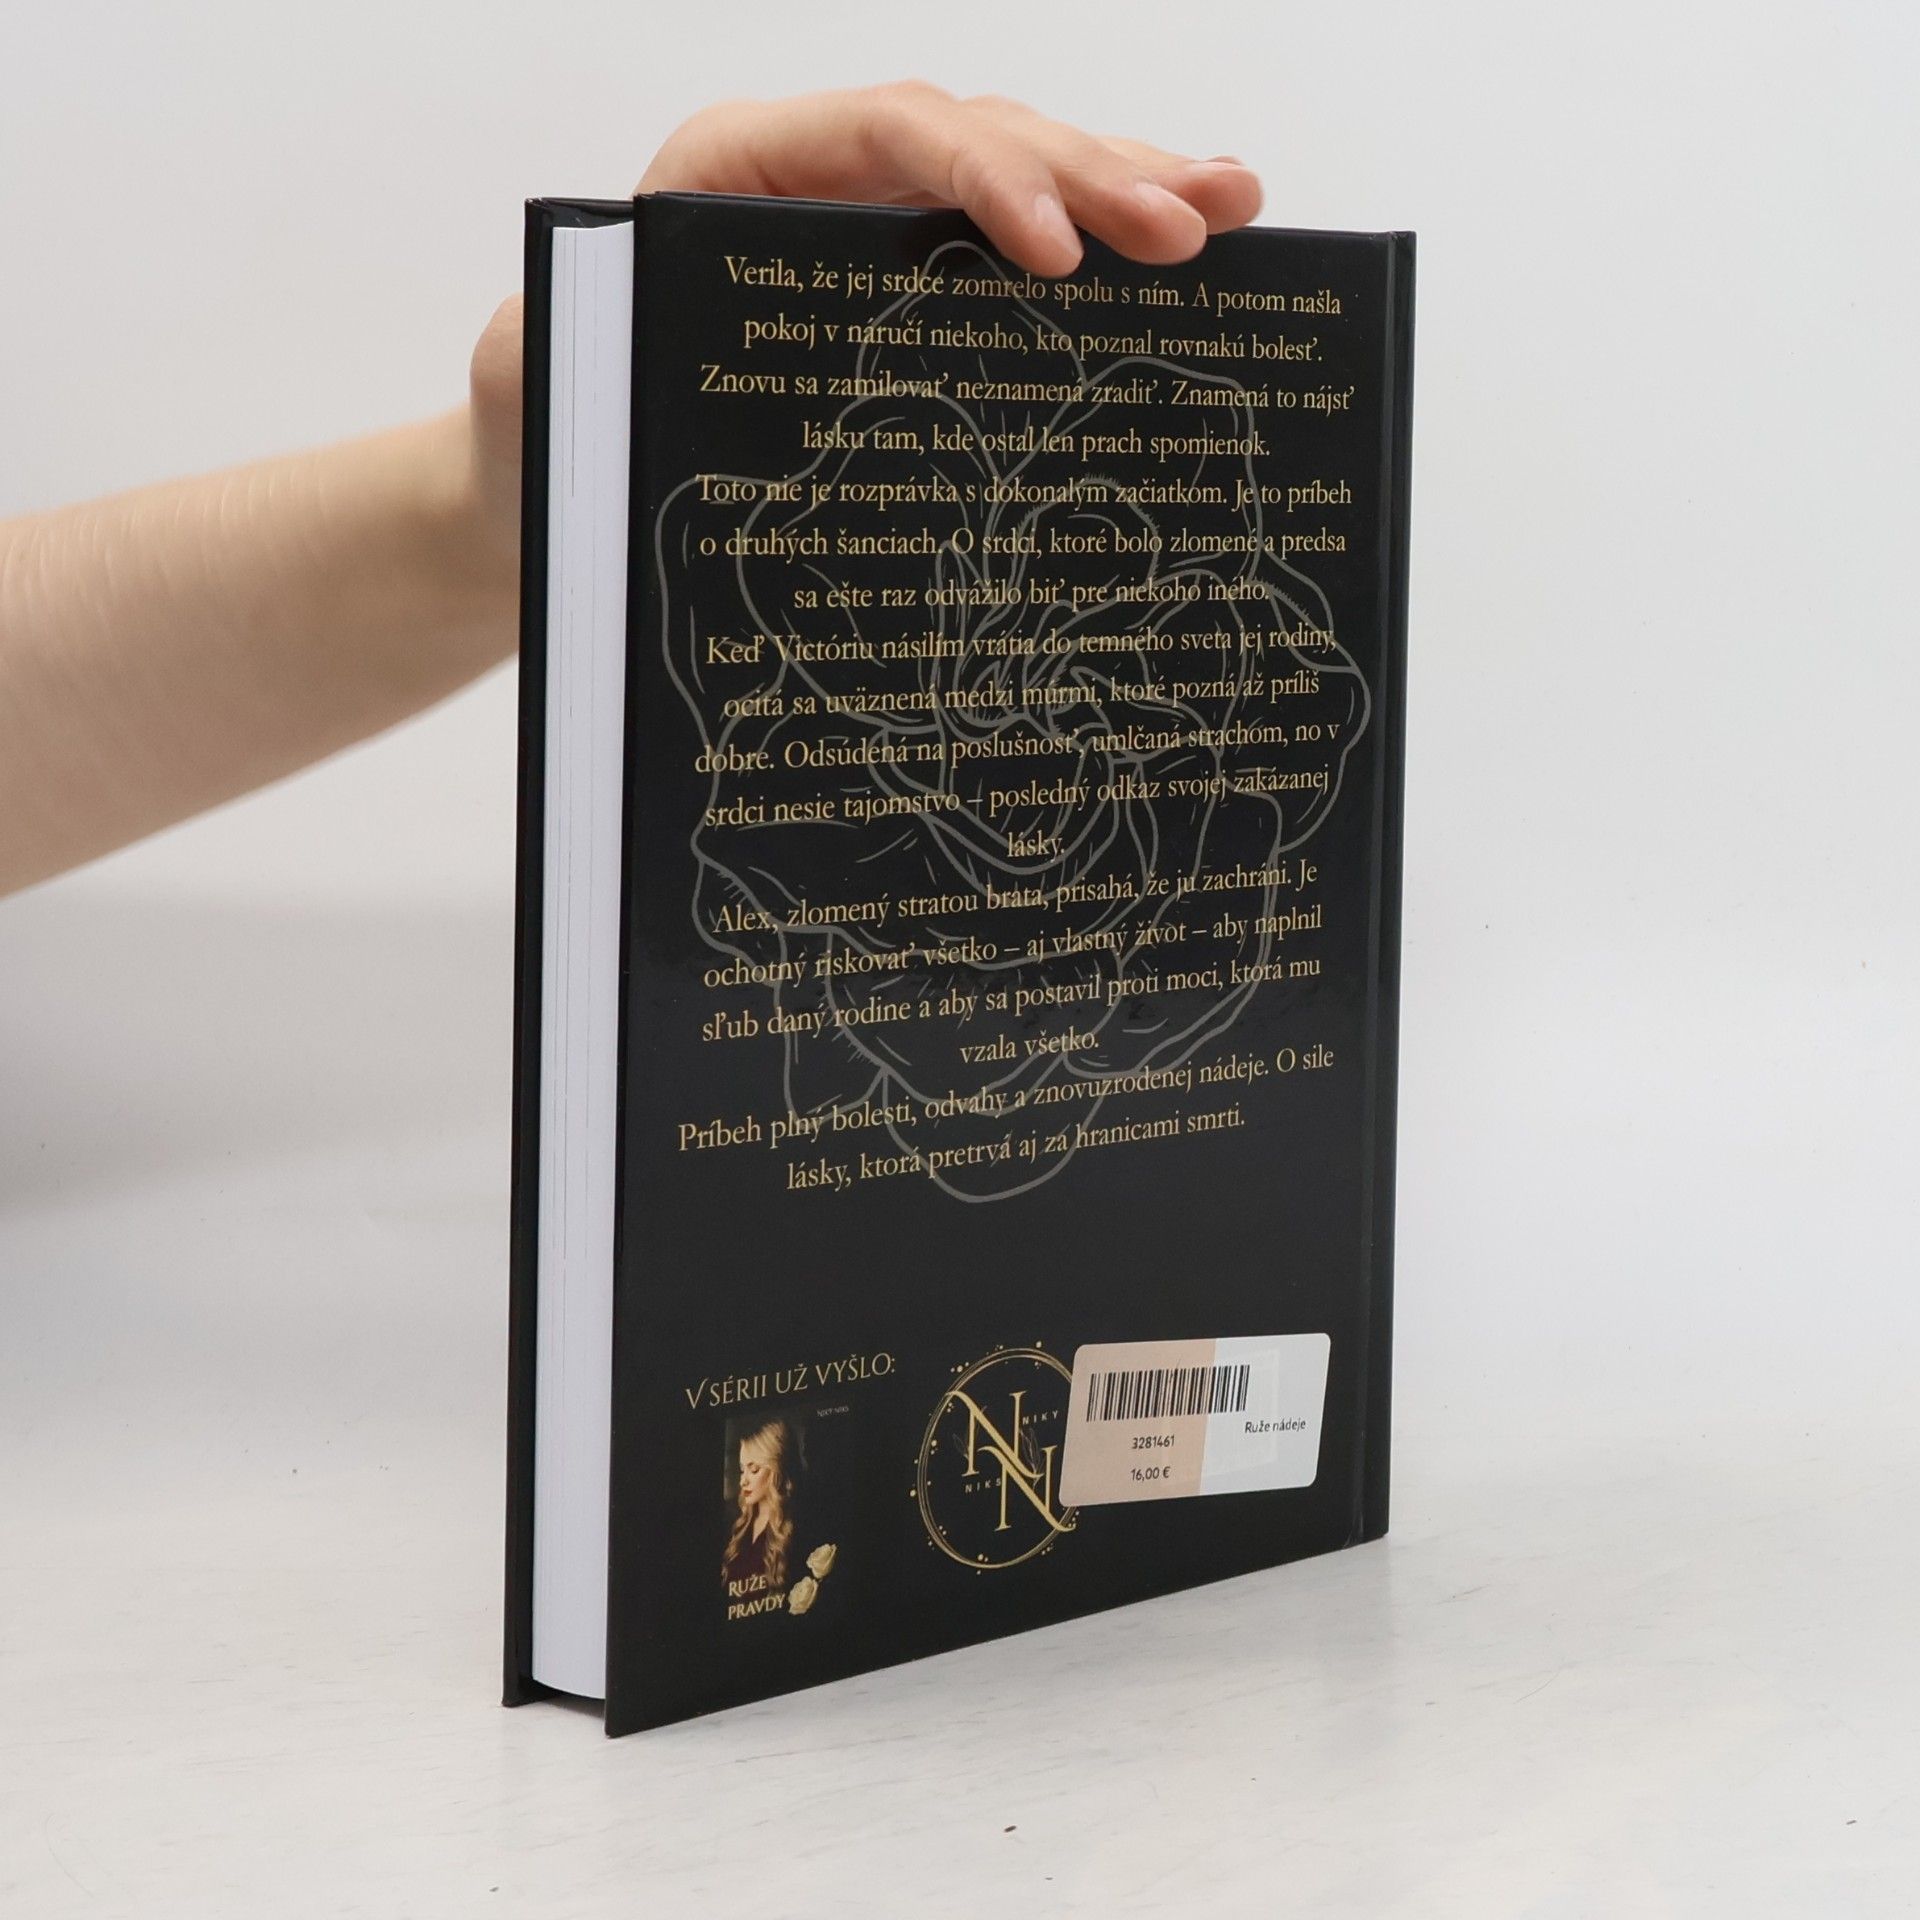 Verila, že jej srdce zomrelo spolu s ním. A potom našla
pokoj v náručí niekoho, kto poznal rovnakú bolesť.
Znovu sa zamilovať neznamená zradiť. Znamená to nájsť
lásku tam, kde ostal len prach spomienok.
Toto nie je rozprávka s dokonalým začiatkom. Je to príbeh
o druhých šanciach. O srdci, ktoré bolo zlomené a predsa
sa ešte raz odvážilo biť pre niekoho iného.
Keď Victóriu násilím vrátia do temného sveta jej rodiny,
ocitá sa uväznená medzi múrmi, ktoré pozná až príliš
dobre. Odsúdená na poslušnosť, umlčaná strachom, no v
srdci nesie tajomstvo – posledný odkaz svojej zakázanej
lásky.
Alex, zlomený stratou brata, prisahá, že ju zachráni. Je
ochotný riskovať všetko – aj vlastný život – aby naplnil
sľub daný rodine a aby sa postavil proti moci, ktorá mu
vzala všetko.
Príbeh plný bolesti, odvahy a znovuzrodenej nádeje. O sile
lásky, ktorá pretrvá aj za hranicami smrti.
V SÉRII UŽ VYŠLO:
NIKY NIKS
RUŽE
PRAVDY
NN
NIKY
NIKS
Ruže nádeje
3281461
16,00 €